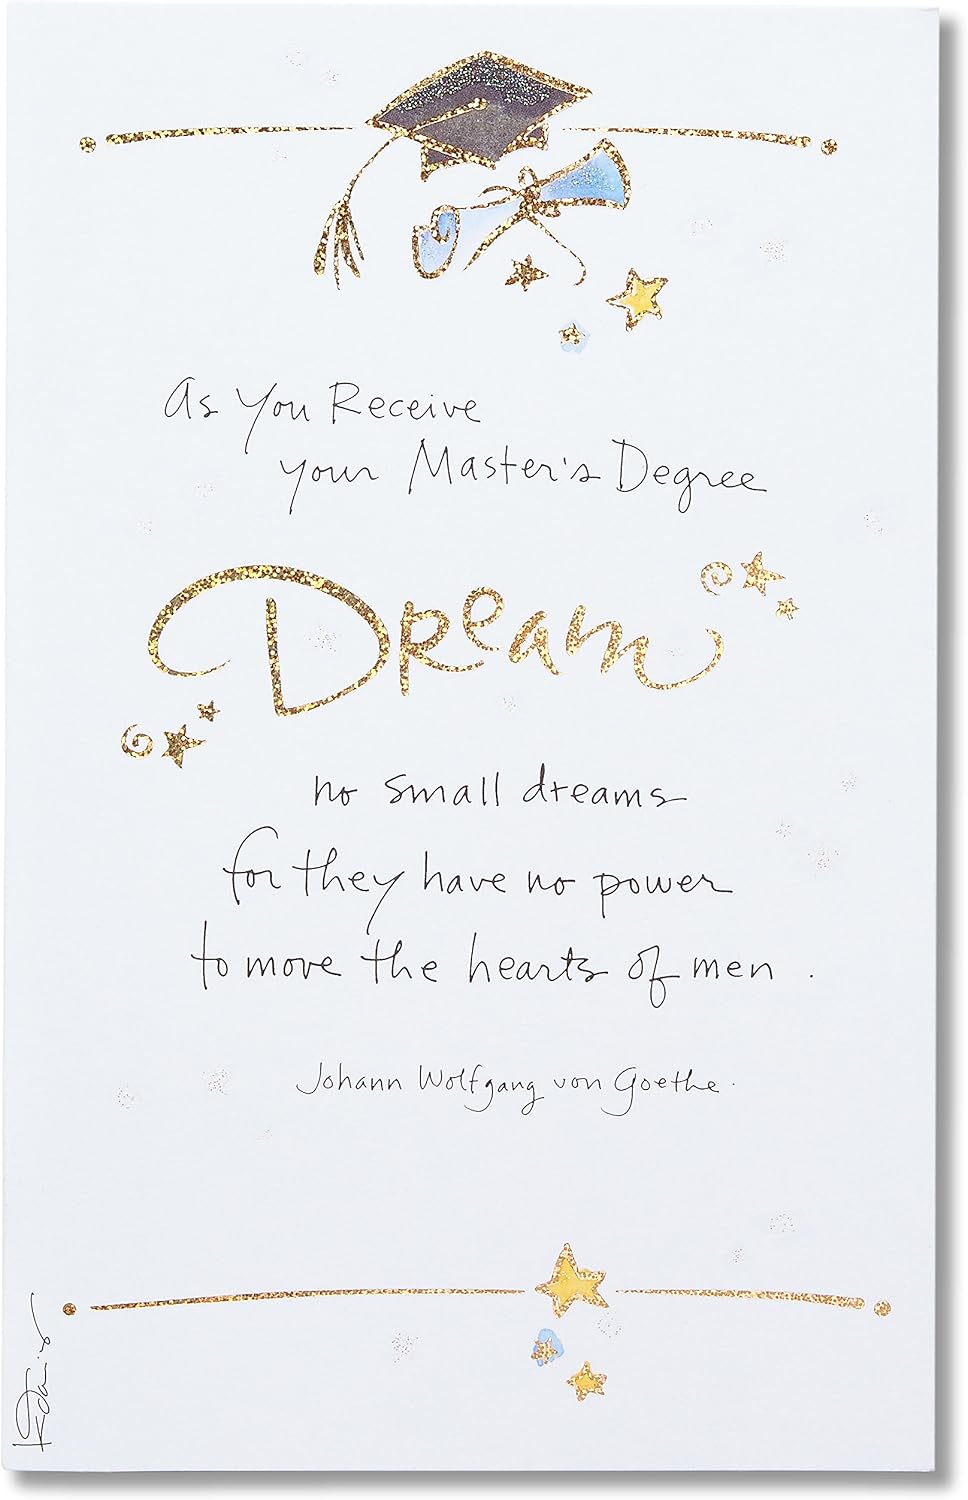 As You Receive
your Master's Degree
Dream
no small dreams
for they have no power
to move the hearts of men.
Johann Wolfgang von Goethe.